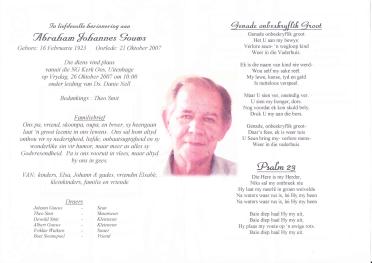 In liefdevolle herinnering aan
Abraham Johannes Gouws
Gebore: 16 Februarie 1923 Oorlede: 21 Oktober 2007
Die diens vind plaas
vanuit die NG Kerk Oos, Uitenhage
op Vrydag, 26 Oktober 2007 om 10:00
onder leiding van Ds. Danie Nell
Bedankings : Theo Smit
Familiebrief
Ons pa, vriend, skoonpa, oupa, en broer, sy heengaan
laat 'n groot leemte in ons lewens. Ons sal hom altyd
onthou vir sy nederigheid, liefde, onbaatsugtigheid en sy
wonderlike sin vir humor, maar meer as alles sy
Godsvresendheid. Pa is ons vooruit in vlees, maar altyd
by ons in gees.
VAN: kinders, Elsa, Johann & gades, vriendin Elsabé,
kleinkinders, familie en vriende
Draers
Johann Gouws - Seun
Theo Smit - Skoonseun
Dewald Smit - Kleinseun
Albert Gouws - Kleinseun
- Swaer
- Vriend
Genade onbeskryflik Groot
Genade onbeskryflik groot
Het U aan my bewys
Verlore seun- 'n wegloop kind
Weer in die Vaderhuis.
Ek is die naam van kind nie werd-
Wou self my sake reël
My lewe, sonde, tyd en geld
Is nuteloos verspeel.
Maar U sien ver, oneindig ver.
U sien my honger, dors.
Nog voordat ek kon skuld bely,
Druk U my aan die bors.
Genade, onbeskryflik groot-
Daar's fees, ek is weer tuis
U Seun bring my- verlore mens-
Weer in die Vaderhuis.
Psalm 23
Die Here is my Herder,
Niks sal my ontbreek nie
Hy laat my neerlê in groen weivelde
Na waters waar rus is, lei Hy my heen
Na waters waar rus is, lei Hy my heen
Baie diep haal Hy my uit,
Baie diep haal Hy my uit.
Baie diep haal Hy my uit,
Baie diep haal Hy my uit.